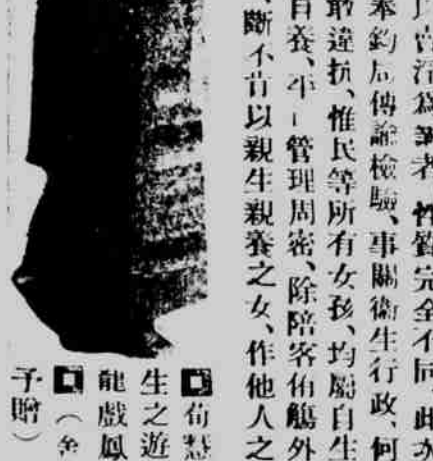 賣淫爲業者、性質完全不同、此次
奉鈞局傳諭檢驗、事關衞生行政、何
敢違抗、惟民等所有女孩、均屬自生
自養、平日管理周密、除陪客侑觴外
、斷不肯以親生親養之女、作他人之
荀慧
生之遊
龍戲鳳
予贈）